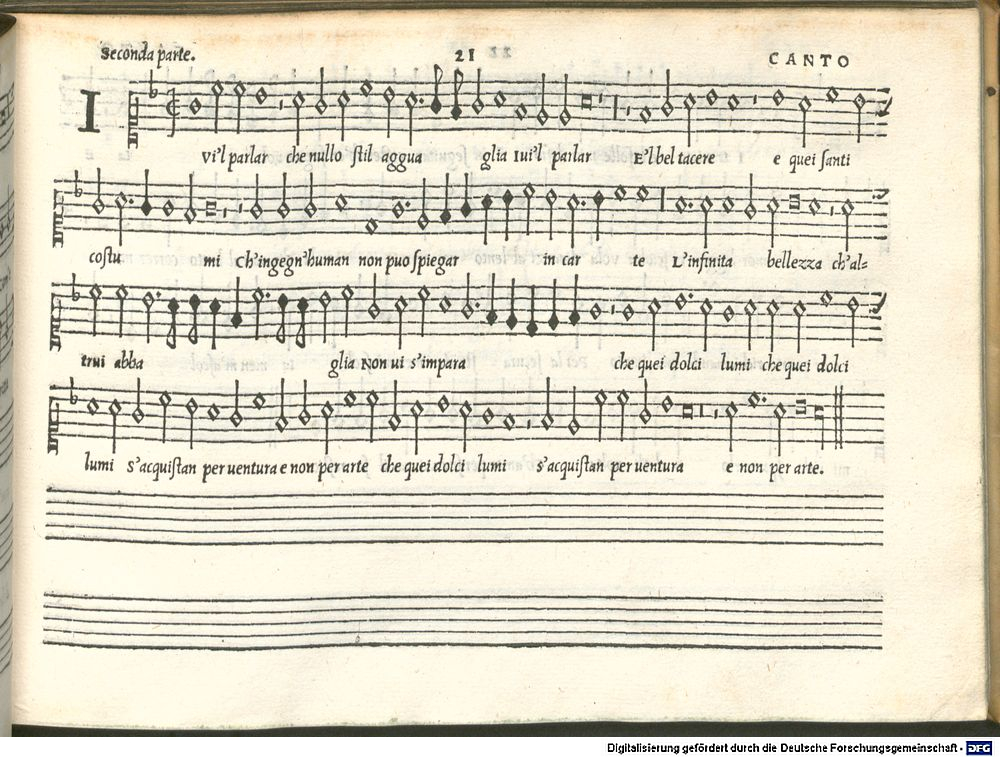 Seconda parte. 21 CANTO
I
vi'l parlar che nullo stil aggua glia Iui'l parlar E'l bel tacere e quei santi
costu mi Ch'ingegn'human non puo spiegar in car te L'infinita bellezza ch'al=
trui abba glia Non ui s'impara che quei dolci lumi che quei dolci
lumi s'acquistan per uentura e non per arte che quei dolci lumi s'acquistan per uentura e non per arte.
Digitalisierung gefördert durch die Deutsche Forschungsgemeinschaft - DFG